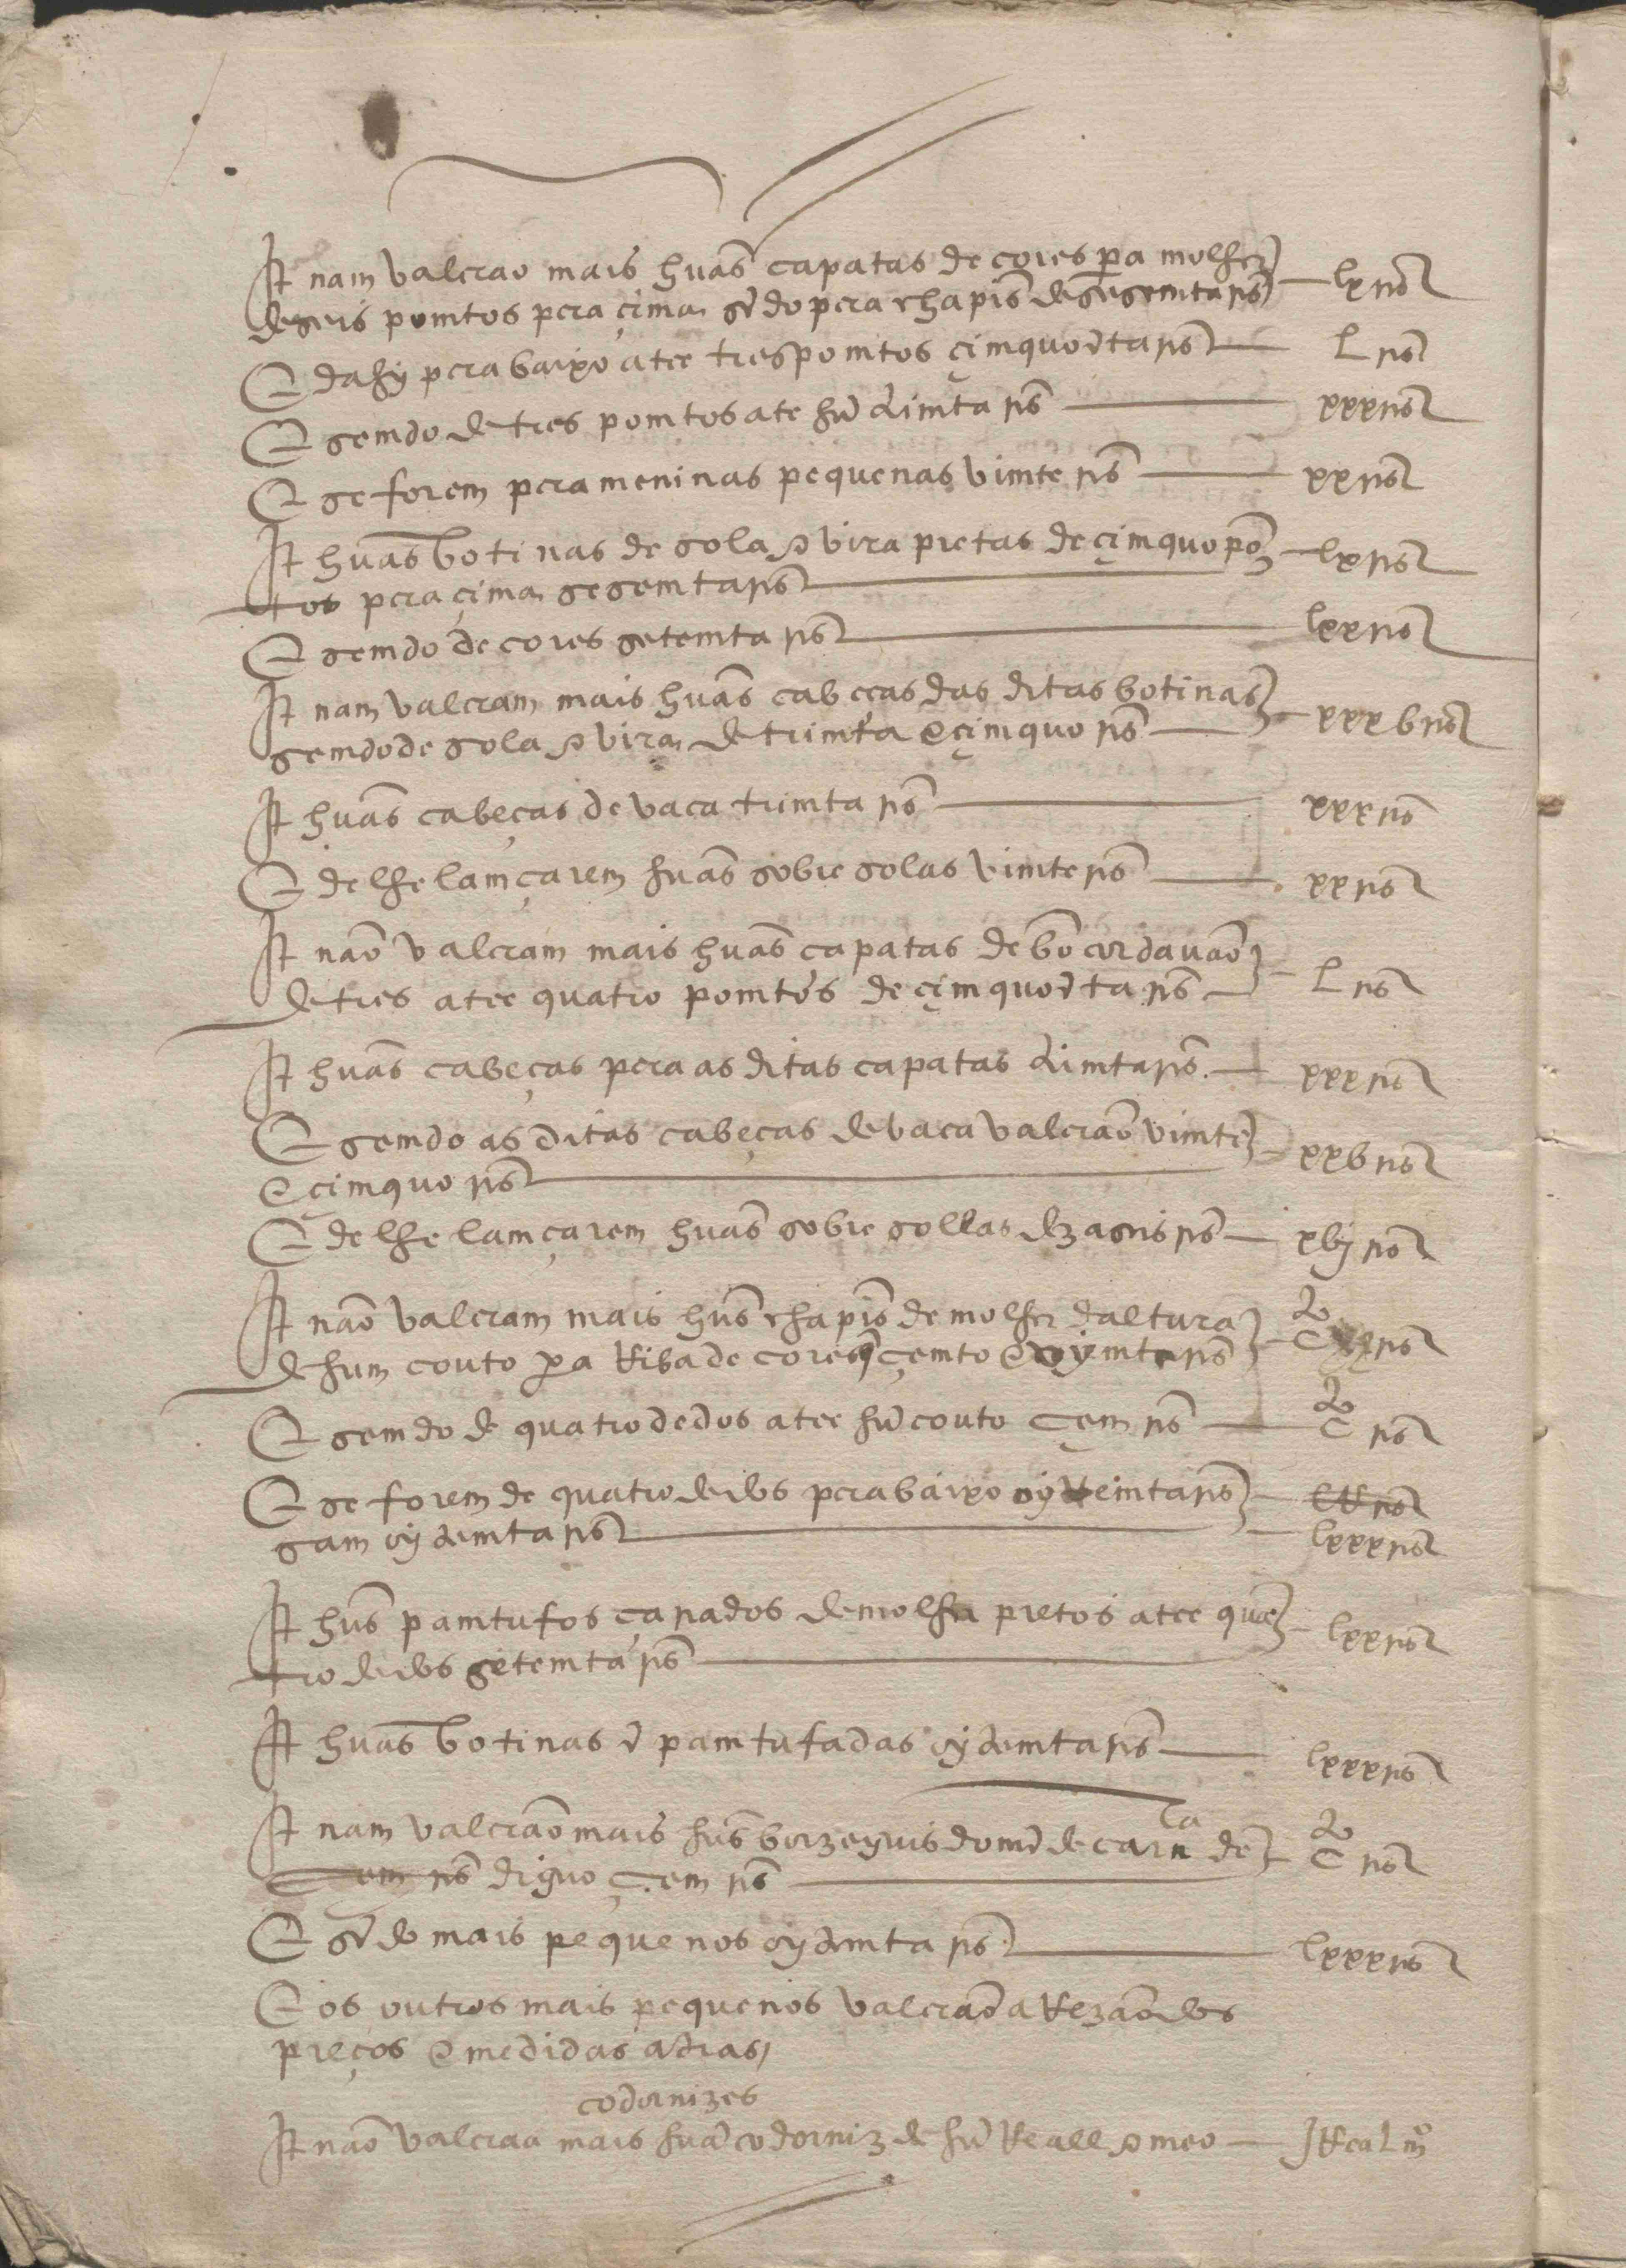 It nam valerao mais huãs capatas de cores pera molher lx rs
de seis pomtos pera çima sẽdo pera chapis de sesemta rs
E dahy pera baixo atee tres pomtos çimquoẽta rs L rs
E semdo de tres pomtos ate hũ trimta rs xxx rs
E se forem pera meninas pequenas vimte rs xx rs
It huãs botinas de sola e vira pretas de çimquo pom lx rs
tos pera çima sesemta rs
E semdo de cores setemta rs lxx rs
It nam valeram mais huãs cabeças das ditas botinas
semdo de sola e vira de trimta e çimquo rs xxxb rs
It huãs cabeças de vaca trimta rs xxx rs
E de lhe lamçarem huãs sobre solas vimte rs xx rs
It naõ valeram mais huãs capatas de bõ cordavaõ
de tres atee quatro pomtos de çimquoẽta rs L rs
It huãs cabeças pera as ditas capatas trimta rs xxx rs
E semdo as ditas cabeças de vaca valeraõ vimte xxb rs
e çimquo rs
E de lhe lamçarem huãs sobre sollas dezaseis rs xbj rs
It naõ valeram mais hũs chapis de molher daltura
de hum couto pera Riba de cores çemto e vymte rs Cxx rs
E semdo de quatro dedos atee hũ couto Çem rs C rs
E se forem de quatro dedos pera baixo oyteemta rs
sam oytemta rs lxxx rs
It hũs pamtufos çarrados de molher pretos atee qua lxx rs
tro dedos setemta rs
It huãs botinas ẽpamtufadas oytemta rs lxxx rs
It nam valeraõ mais hũs borzeguis domẽ de carnra de C rs
Çem rs diguo Çem rs
E sẽdo mais pequenos oytemta rs lxxx rs
E os outros mais pequenos valeraõ a Rezaõ dos
preços e medidas atras
codornizes
It naõ valeraa mais huã codorniz de hũ Reall e meo j Real mº